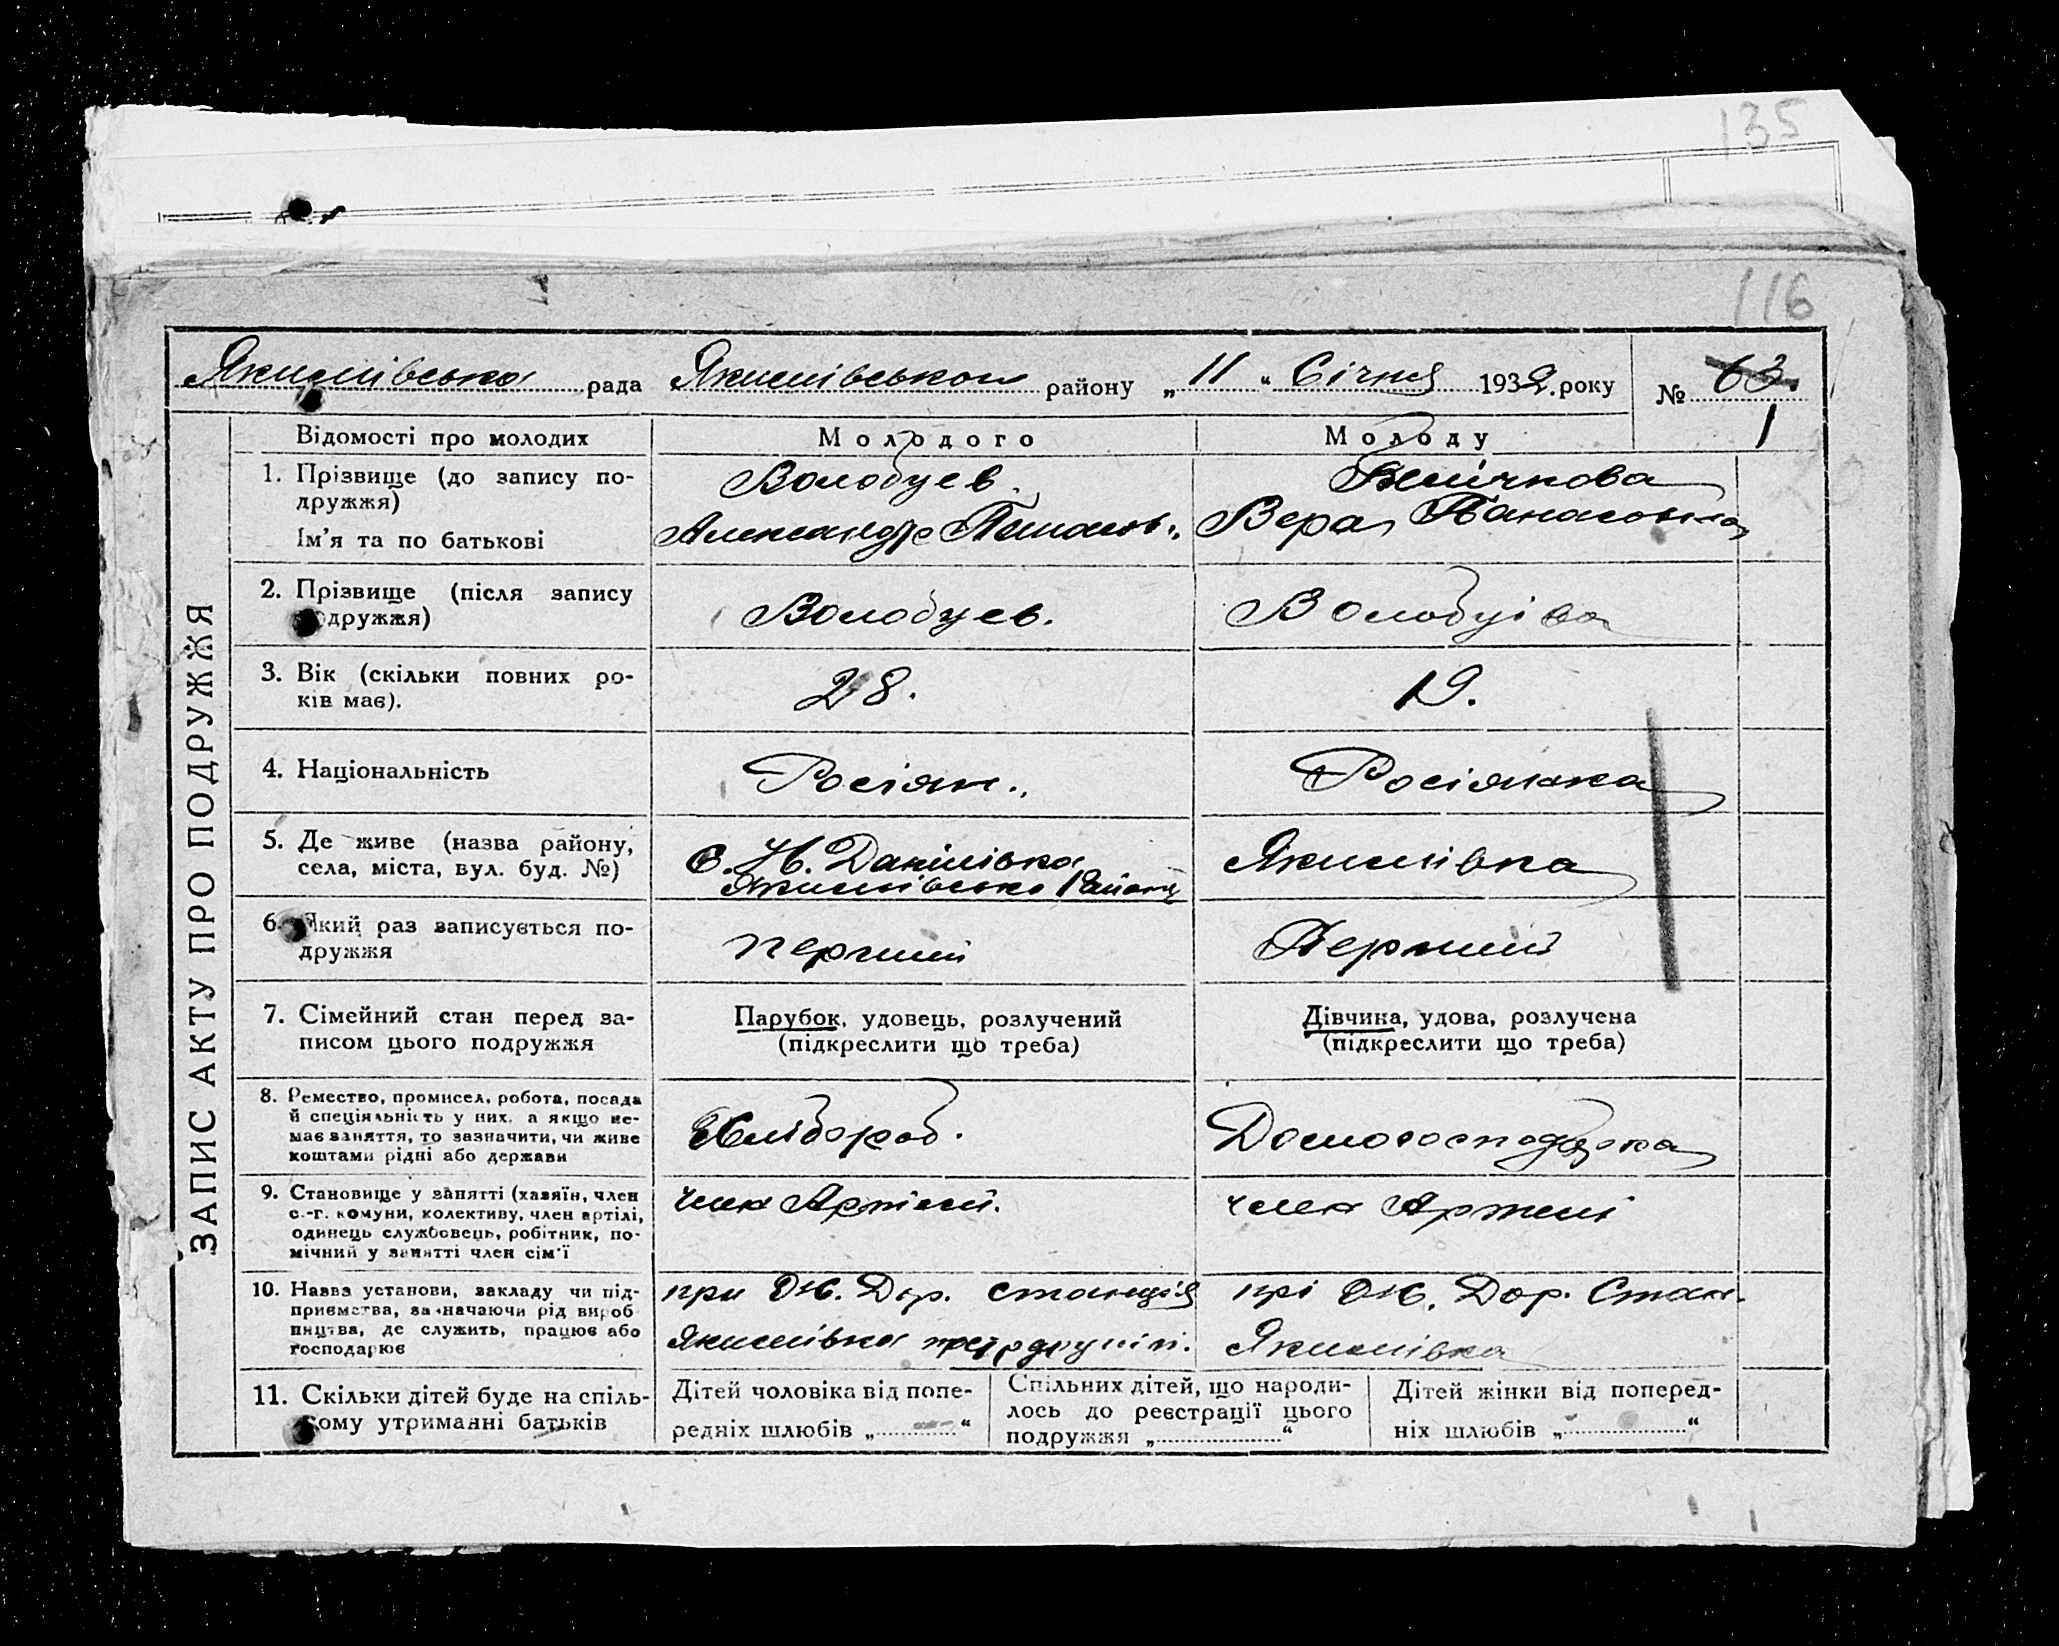 135
116
Якимівська рада Якимівського району „ 11 “ Січня 1932. року № 63.
1
ЗАПИС АКТУ ПРО ПОДРУЖЖЯ
Відомості про молодих Молодого Молоду
1. Прізвище (до запису по-
дружжя)
Волобуев.
Ім'я та по батькові
Александр Вера Панасовна
2. Прізвище (після запису
подружжя)
Волобуев. Волобуіва
3. Вік (скільки повних ро-
ків має).
28. 19.
4. Національність Росіян. Росіянка
5. Де живе (назва району,
села, міста, вул. буд. №)
С. Н. Данілівка Якимівка
Якимівсько Району
6. Який раз записується по-
дружжя
перший Перший
7. Сімейний стан перед за-
писом цього подружжя
Парубок, удовець, розлучений
(підкреслити що треба)
Дівчина, удова, розлучена
(підкреслити що треба)
8. Ремество, промисел, робота, посада
й спеціяльність у них, а якщо не-
має заняття, то зазначити, чи живе
коштами рідні або держави
Хлібороб. Домогосподарка
9. Становище у занятті (хазяїн, член
с.-г. комуни, колективу, член артілі,
одинець службовець, робітник, по-
мічний у занятті член сім'ї
член Артілі. член Артилі
10. Назва установи, закладу чи під-
приємства, зазначаючи рід вироб
ництва, де служить, працює або
господарює
при Ж. Дор. станція прі Ж. Дор. Стан.
Якимівка Якимівка
11. Скільки дітей буде на спіль-
ному утриманні батьків
Дітей чоловіка від попе-
редніх шлюбів „ “
Спільних дітей, що народи-
лось до реєстрації цього
подружжя „ “
Дітей жінки від поперед-
ніх шлюбів „ “